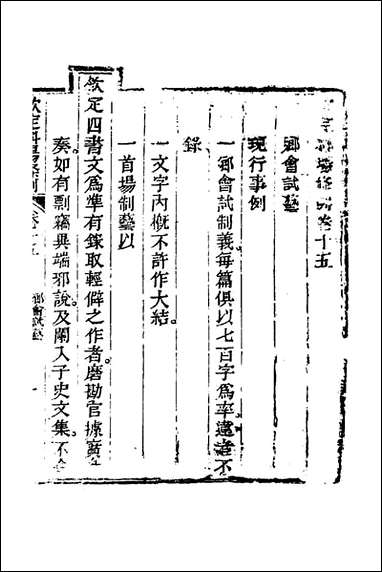 場條例卷十五
鄉會試藝
現行事例
一鄉會試制義每篇俱以七百字為率違者不
錄
一文字內概不許作大結
一首場制藝以
欽定四書文為準有錄取輕僻之作者磨勘官據實
奏如有剽竊異端邪說及闌入子史文集不
欽定科場條例
卷十五
鄉會試藝
一